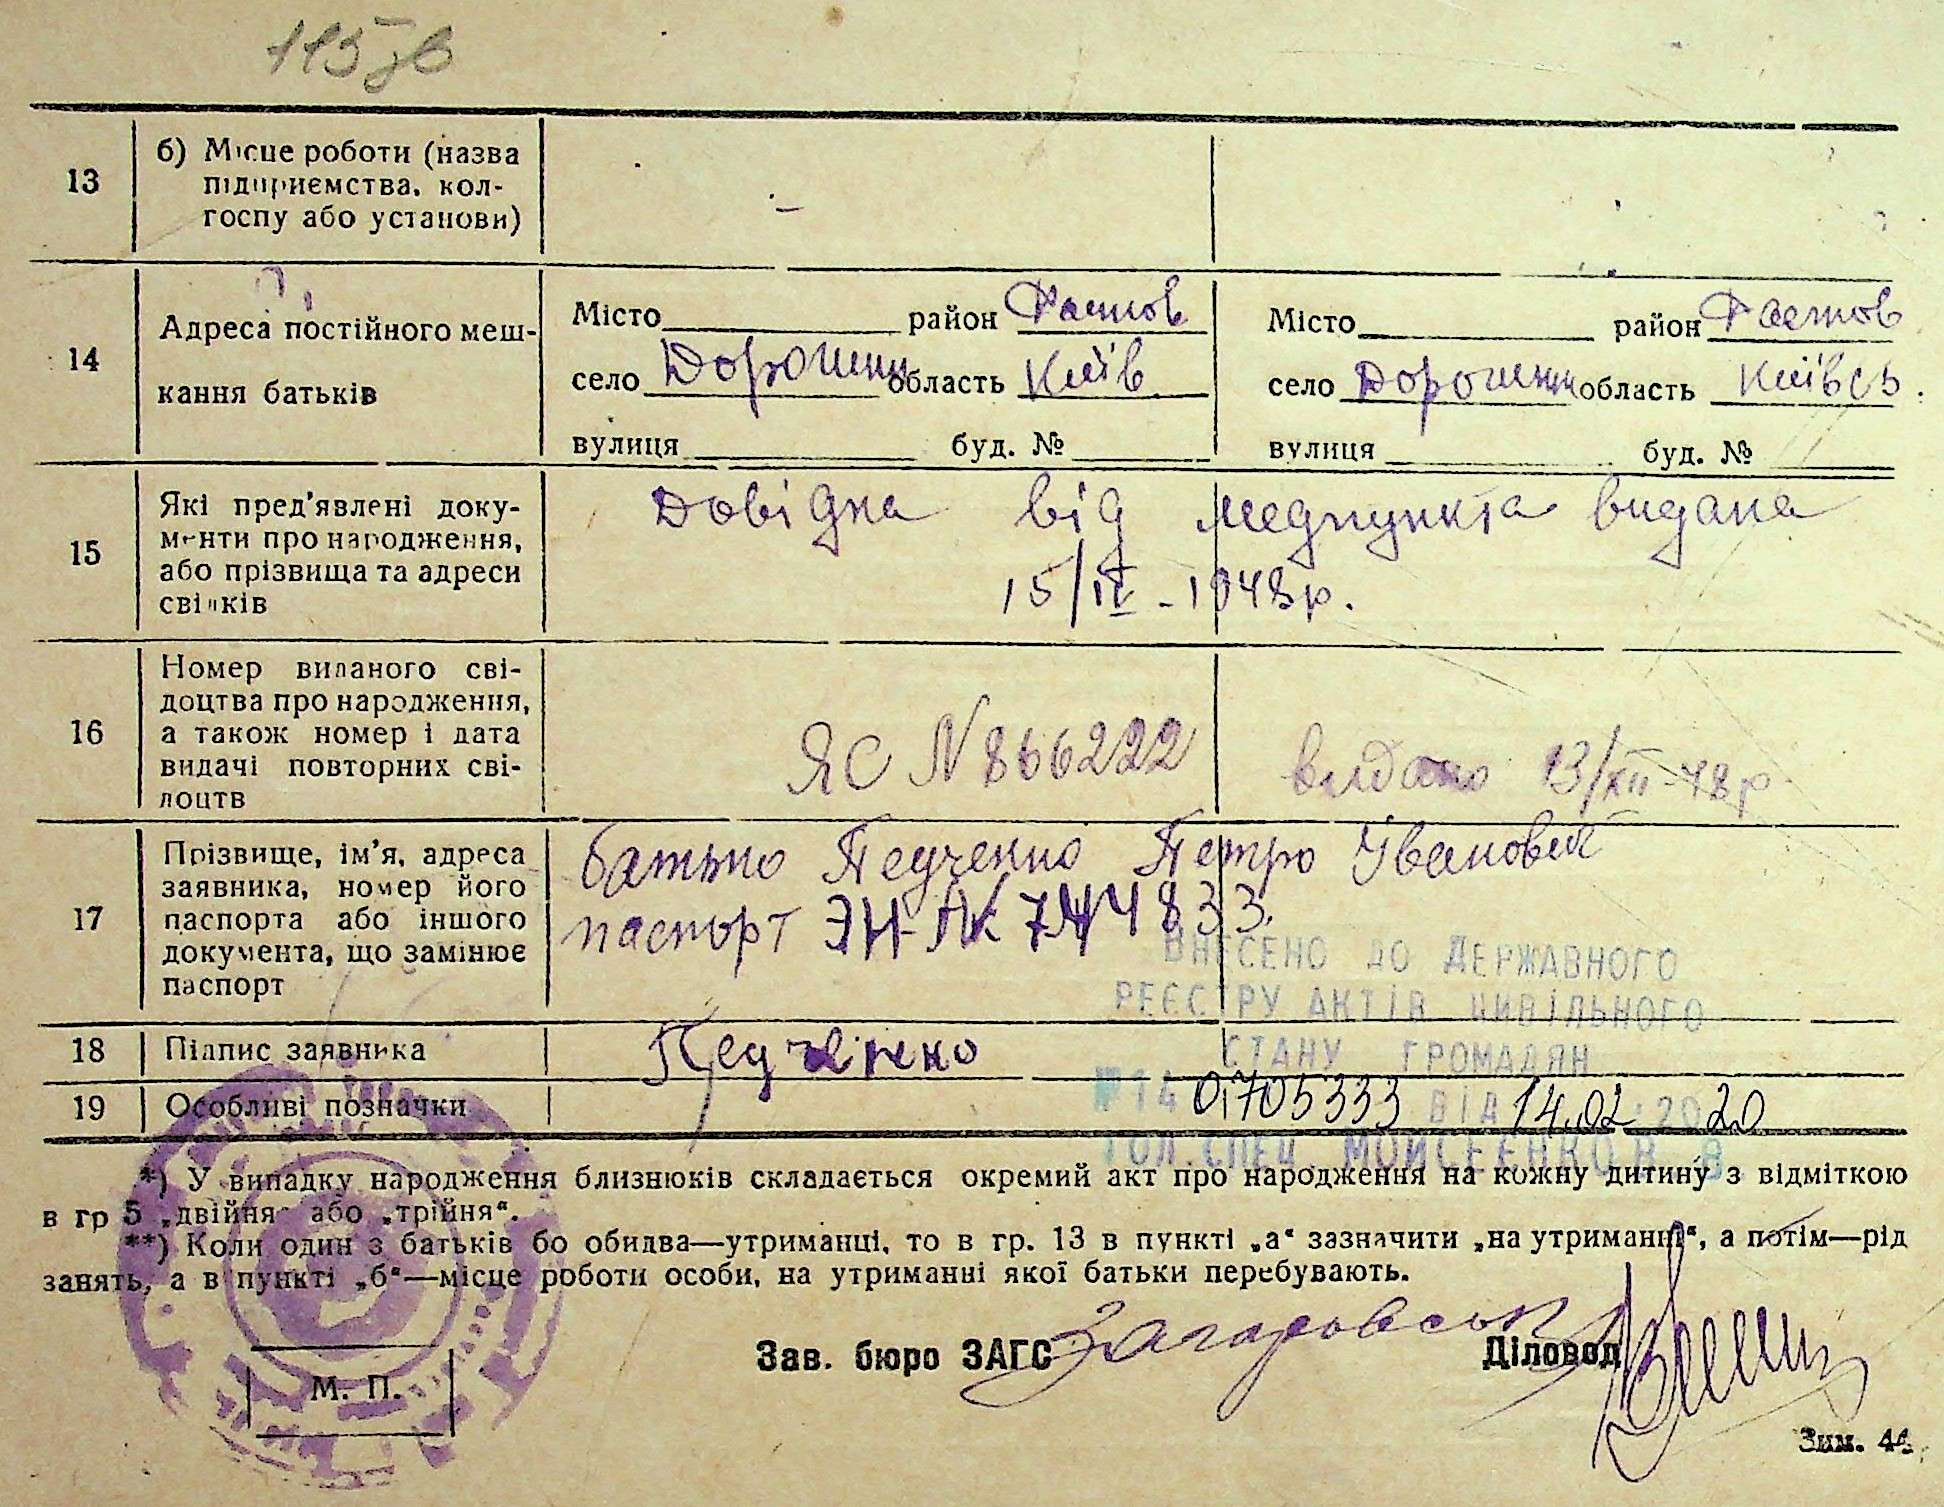 115зв
13 б) Місце роботи (назва
підприємства, кол-
госпу або установи)
14 Адреса постійного меш-
кання батьків
Місто район Фастов
село Дорошин область Київ
вулиця буд. №
Місто район Фастов
село Дорошин область Київсь.
вулиця буд. №
15 Які пред'явлені доку-
менти про народження,
або прізвища та адреси
свідків
Довідка від медпункта видана
15/IV - 1948 р.
16 Номер виданого сві-
доцтва про народження,
а також номер і дата
видачі повторних сві-
доцтв
ЯС N 866222 видано 13/XII-48 р
17 Прізвище, ім'я, адреса
заявника, номер його
паспорта або іншого
документа, що замінює
паспорт
батько Педченко Петро Іванович
паспорт ЭН №
ВНЕСЕНО ДО ДЕРЖАВНОГО
РЕЄСТРУ АКТІВ ЦИВІЛЬНОГО
СТАНУ ГРОМАДЯН
18 Підпис заявника Педченко
№ 14 0705333 ВІД 14.02.2020
19 Особливі позначки
ГОЛ.СПЕЦ МОЙСЕЄНКО В В
*) У випадку народження близнюків складається окремий акт про народження на кожну дитину з відміткою
в гр 5 „двійня" або „трійня".
**) Коли один з батьків бо обидва—утриманці, то в гр. 13 в пункті „а" зазначити „на утриманні", а потім—рід
занять, а в пункті „б"—місце роботи особи, на утриманні якої батьки перебувають.
Зав. бюро ЗАГС Діловод
М. П.
Зим. 44